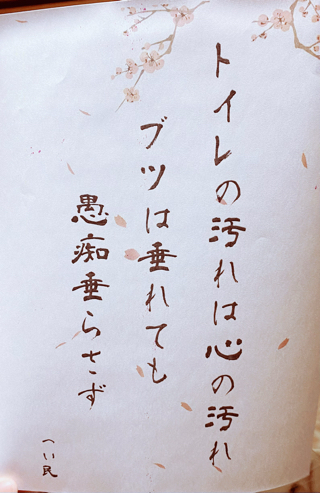 トイレの汚れは心の汚れ
ブツは垂れても
愚痴垂らさず
つい民